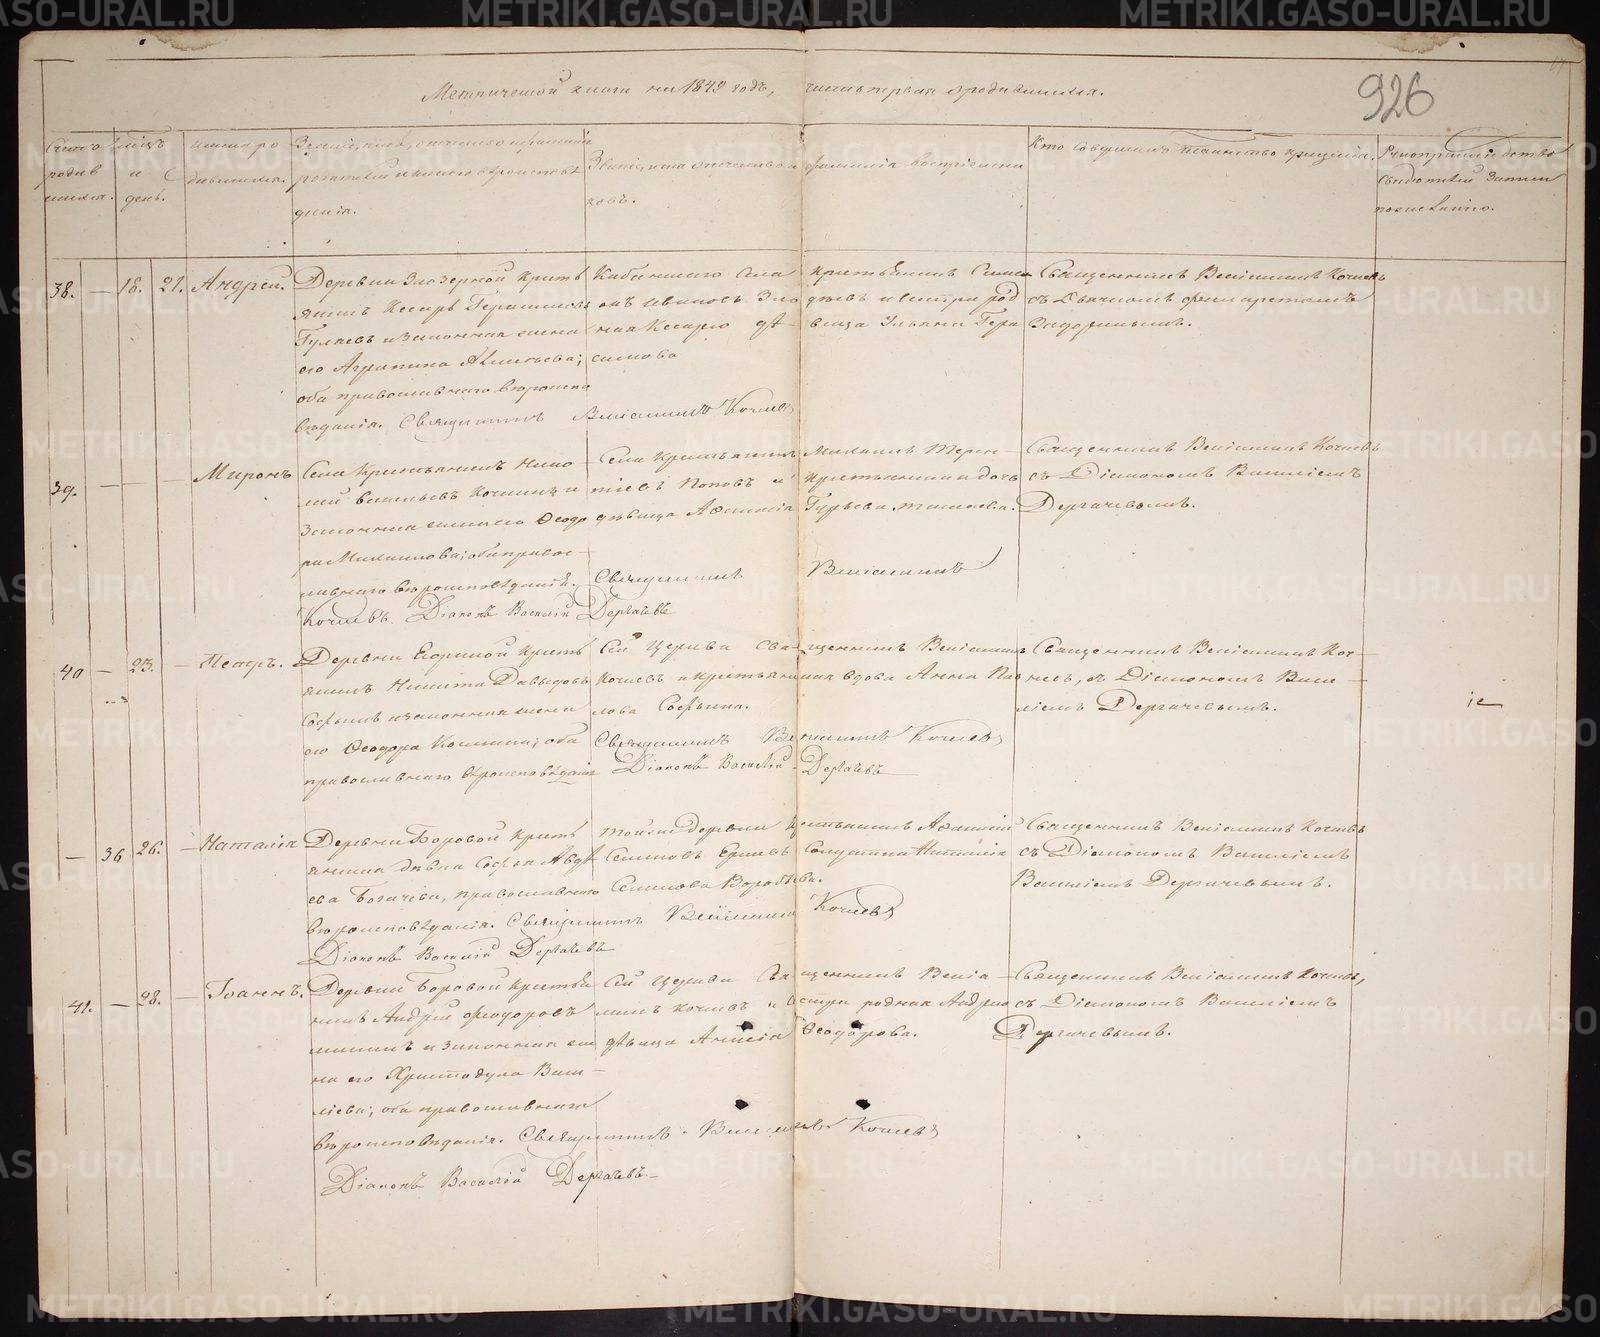 Метрической книги на 1849 годъ, часть первая о родившихся.
926
Счетъ родив шихся.
Мѣсяцъ и день.
Имена ро дившихся.
Званіе, имя, отчество и фамилія
родителей и какого вѣроисповѣ
данія.
Званіе, имя отчество и фамилія воспріемни
ковъ.
Кто совершалъ таинство крещенія.
Рукоприкладство
свидѣтелей записи
по желанію.
38. — 18. 21. Андрей.
Деревни Заозерной крестья
янинъ Кесарь Герасимовъ
Гуляевъ и законная жена
его Агрипина
оба православнаго вѣроиспо
вѣданія. Священникъ Веніаминъ Кочневъ
Кабанскаго села крестьянинъ Симе
онъ Ивановъ и сестра род
ная Кесарю дѣвица Ульяна Гера
симова
Священникъ Веніаминъ Кочневъ
съ
39. — — — Миронъ
Села крестьянинъ Нико
лай Васильевъ и
законная жена его Ѳеодо
ра Михаилова; оба право
славнаго вѣроисповѣданія.
Священникъ Веніаминъ
Кочневъ. Діаконъ Василій Дергачевъ
Села крестьянинъ Михаилъ Терен
тіевъ Поповъ и крестьянина дочь
дѣвица Гурьева
Священникъ Веніаминъ Кочневъ
съ Діакономъ Василіемъ
Дергачевымъ.
40 — 23. — Петръ.
Деревни крестья
янинъ Никита Давыдовъ
и законная жена
его Ѳеодора Козмина; оба
православнаго вѣроисповѣданія
Сей церкви священникъ Веніаминъ
Кочневъ и крестьянская вдова Анна Пав
лова
Священникъ Веніаминъ Кочневъ
Діаконъ Василій Дергачевъ
Священникъ Веніаминъ Коч—
невъ, съ Діакономъ Васи—
ліемъ Дергачевымъ.
— 36 26. — Наталія
Деревни Боровой кресть
янская дѣвка Софья Авдѣ
ева Богачева, православнаго
вѣроисповѣданія. Священникъ Веніаминъ Кочневъ
Діаконъ Василій Дергачевъ
Той же деревни крестьянинъ
Семеновъ Солдатка Наталія
Семенова Воробьева.
Священникъ Веніаминъ Кочневъ
съ Діакономъ Василіемъ
Василіемъ Дергачевымъ.
41. — 28. — Іоаннъ.
Деревни Боровой крестья
нинъ Андрей Ѳеодоровъ
и законная же
на его Христодула Васи—
ліева; оба православнаго
вѣроисповѣданія. Священникъ Веніаминъ Кочневъ
Діаконъ Василій Дергачевъ
Сей церкви священникъ Веніа—
минъ Кочневъ и сестра родная Андрею
дѣвица Ѳеодорова.
Священникъ Веніаминъ Кочневъ,
съ Діакономъ Василіемъ
Дергачевымъ.
METRIKI.GASO-URAL.RU